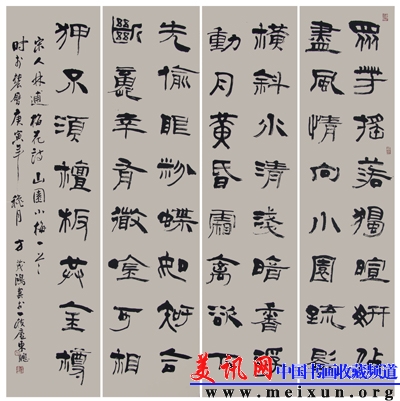 眾芳搖落獨暄妍佔
盡風情向小園疏影
橫斜水清淺暗香浮
動月黃昏霜禽欲下
先偷眼粉蝶如知合
斷魂幸有微吟可相
狎不須檀板共金樽
宋人林逋梅花詩山園小梅一首
时庚寅年
美讯网 中国书画收藏频道
www.meixun.org